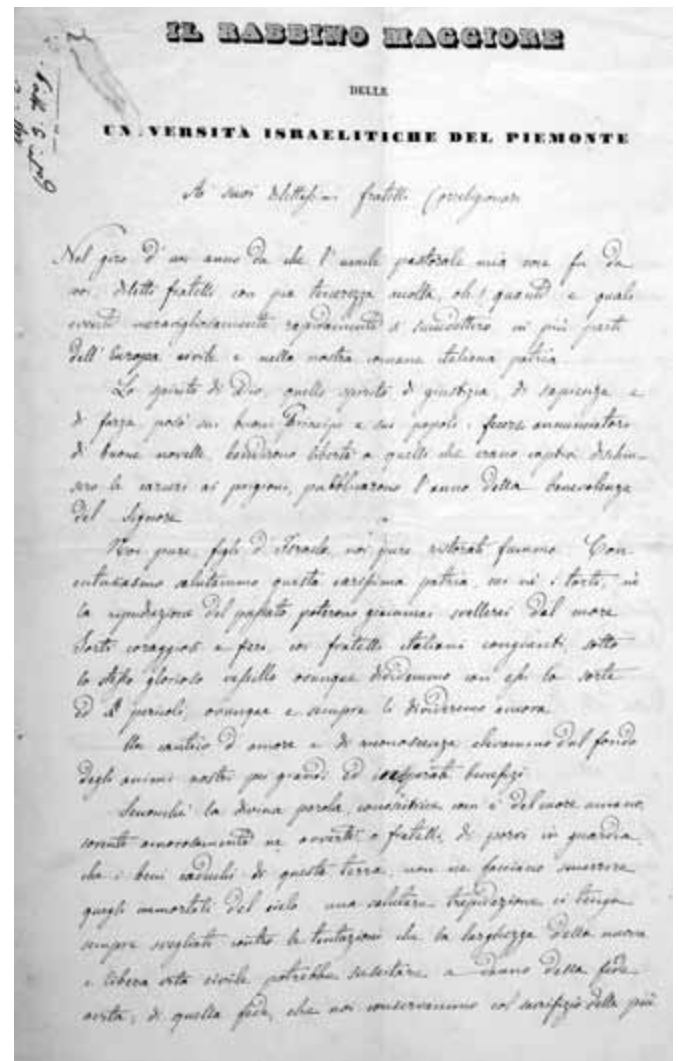 IL RABBINO MAGGIORE
DELLE
UN VERSITÀ ISRAELITICHE DEL PIEMONTE
Ai suoi dilettissimi fratelli Correligionari
Nel giro d'un anno da che l'umile pastorale mia voce fu da
voi, diletti fratelli con pia tenerezza accolta, oh! quanti e quali
eventi meravigliosamente rapidamente si succedettero in più parti
dell'Europa civile e nella nostra comune italiana patria.
Lo spirito di Dio, quello spirito di giustizia, di sapienza e
di forza posò sui buoni Principi e sui popoli; fecersi annunciatori
di buone novelle, bandirono libertà a quelli che erano captivi dischiu-
sero le carceri ai prigioni, pubblicarono l'anno della benevolenza
del Signore
Noi pure, figli d'Israele, noi pure ristorati fummo. Con
entusiasmo salutammo questa carissima patria, cui nè i torti, nè
la del passato poterono giammai svellerci dal cuore
Forti coraggiosi e fieri, coi fratelli italiani congiunti, sotto
lo stesso glorioso vessillo ovunque dividemmo con essi la sorte
ed i pericoli, ovunque e sempre li divideremo ancora.
Un cantico d'amore e di riconoscenza elevammo dal fondo
degli animi nostri pei grandi ed insperati benefizi
Senonchè la divina parola, conoscitrice com'è del cuore umano,
sovente amorosamente ne avverte o fratelli, di porci in guardia
che i beni caduchi di questa terra, non ne facciano smarrire
quegli immortali del cielo una salutare trepidazione ci tenga
sempre svegliati contro le tentazioni che la larghezza della nuova
e libera vita civile potrebbe suscitare a danno della fede
avita, di quella fede, che noi conservammo col sacrifizio della più